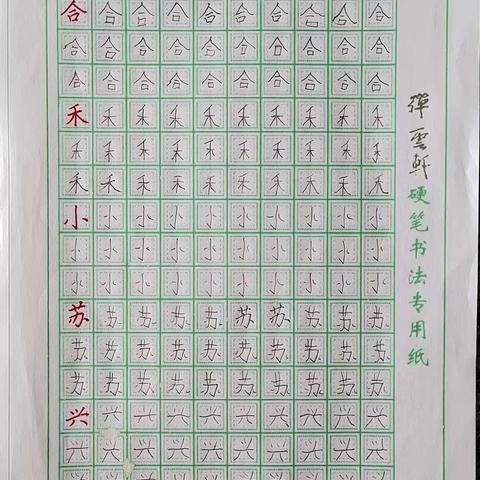 合合合合合合合合合合
合合合合合合合合合合
合合合合合合合合合合
禾禾禾禾禾禾禾禾禾禾
禾禾禾禾禾禾禾禾禾禾
禾禾禾禾禾禾禾禾禾禾
小小小小小小小小小小
小小小小小小小小小小
小小小小小小小小小小
苏苏苏苏苏苏苏苏苏苏
苏苏苏苏苏苏苏苏苏苏
苏苏苏苏苏苏苏苏苏苏
兴兴兴兴兴兴兴兴兴兴
兴兴兴兴兴兴兴兴兴兴
兴兴兴兴兴兴兴兴兴兴
彈雲軒硬笔书法专用纸